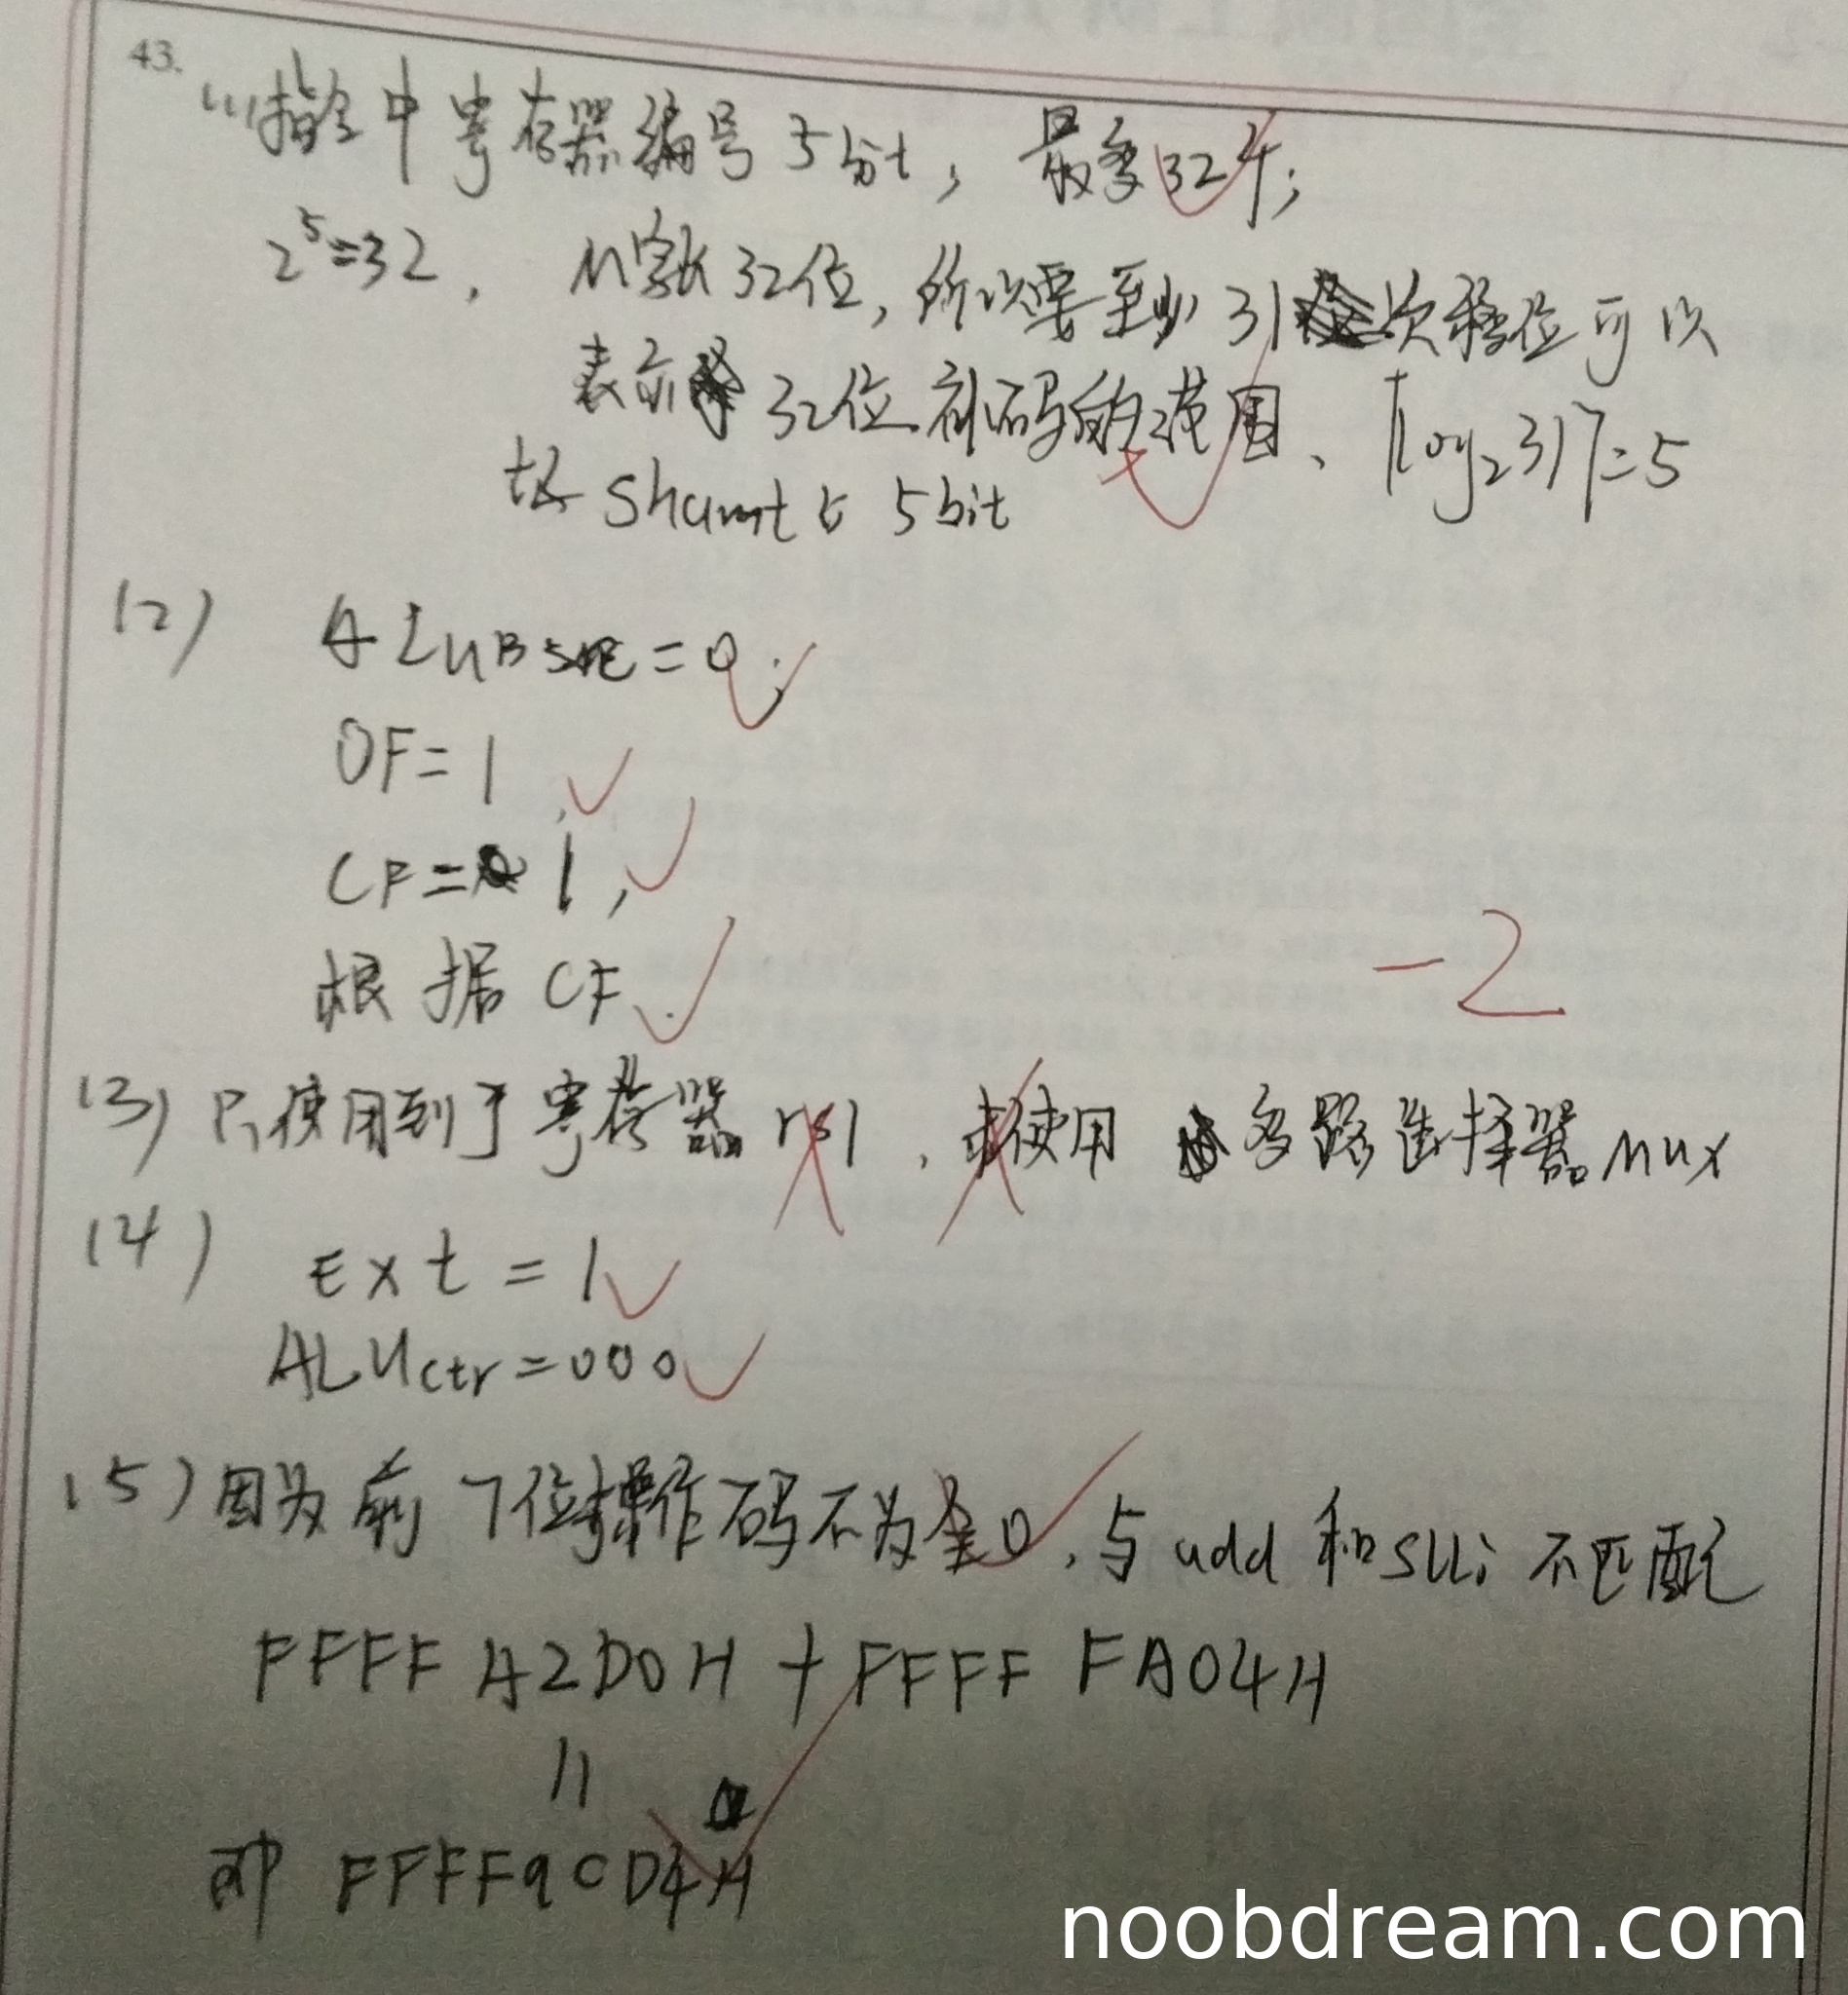 43.
(1)指令中寄存器编号5bit，最多32个；
2⁵=32，M字长32位，所以要至少31次移位可以
表示32位补码的范围、⌈log₂31⌉=5
故shamt占5bit
(2) ALUBsrc=0；
OF=1，
CF=1，
根据CF.
-2
(3)只使用到了寄存器rs1，未使用多路选择器MUX
(4) Ext=1
ALUctr=000
(5)因为前7位操作码不为全0，与add和slli不匹配
FFFF A2D0H + FFFF FA04H
=
即 FFFF9CD4H
noobdream.com